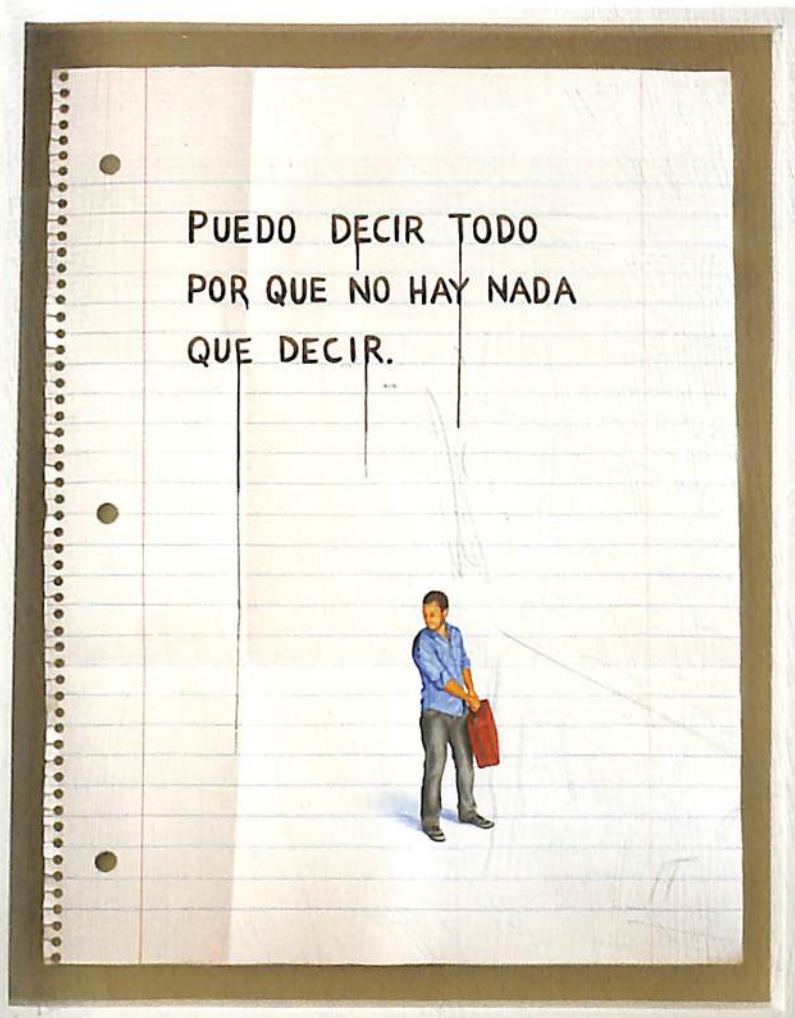 PUEDO DECIR TODO
POR QUE NO HAY NADA
QUE DECIR.